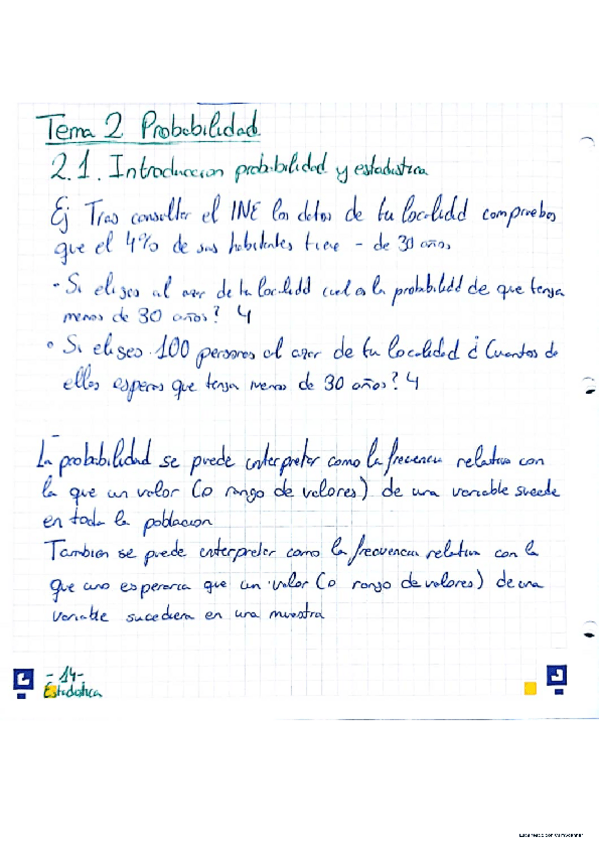 Tema 2 Probabilidad
2.1. Introduccion probabilidad y estadistica
Ej Tras consultar el INE los datos de tu localidd compruebas
que el 4% de sus habitantes tiene - de 30 años
- Si eliges al azar de tu localidd cual es la probabilidd de que tenga
menos de 30 años? 4
• Si eliges 100 personas al azar de tu localidad ¿ Cuantos de
ellos esperas que tenga menos de 30 años? 4
La probabilidad se puede interpretar como la frecuencia relativa con
la que un valor (o rango de valores) de una variable sucede
en toda la poblacion
Tambien se puede interpreter como la frecuencia relativa con la
que uno esperaria que un valor (o rango de valores) de una
variable sucediera en una muestra
- 14 -
Estadistica